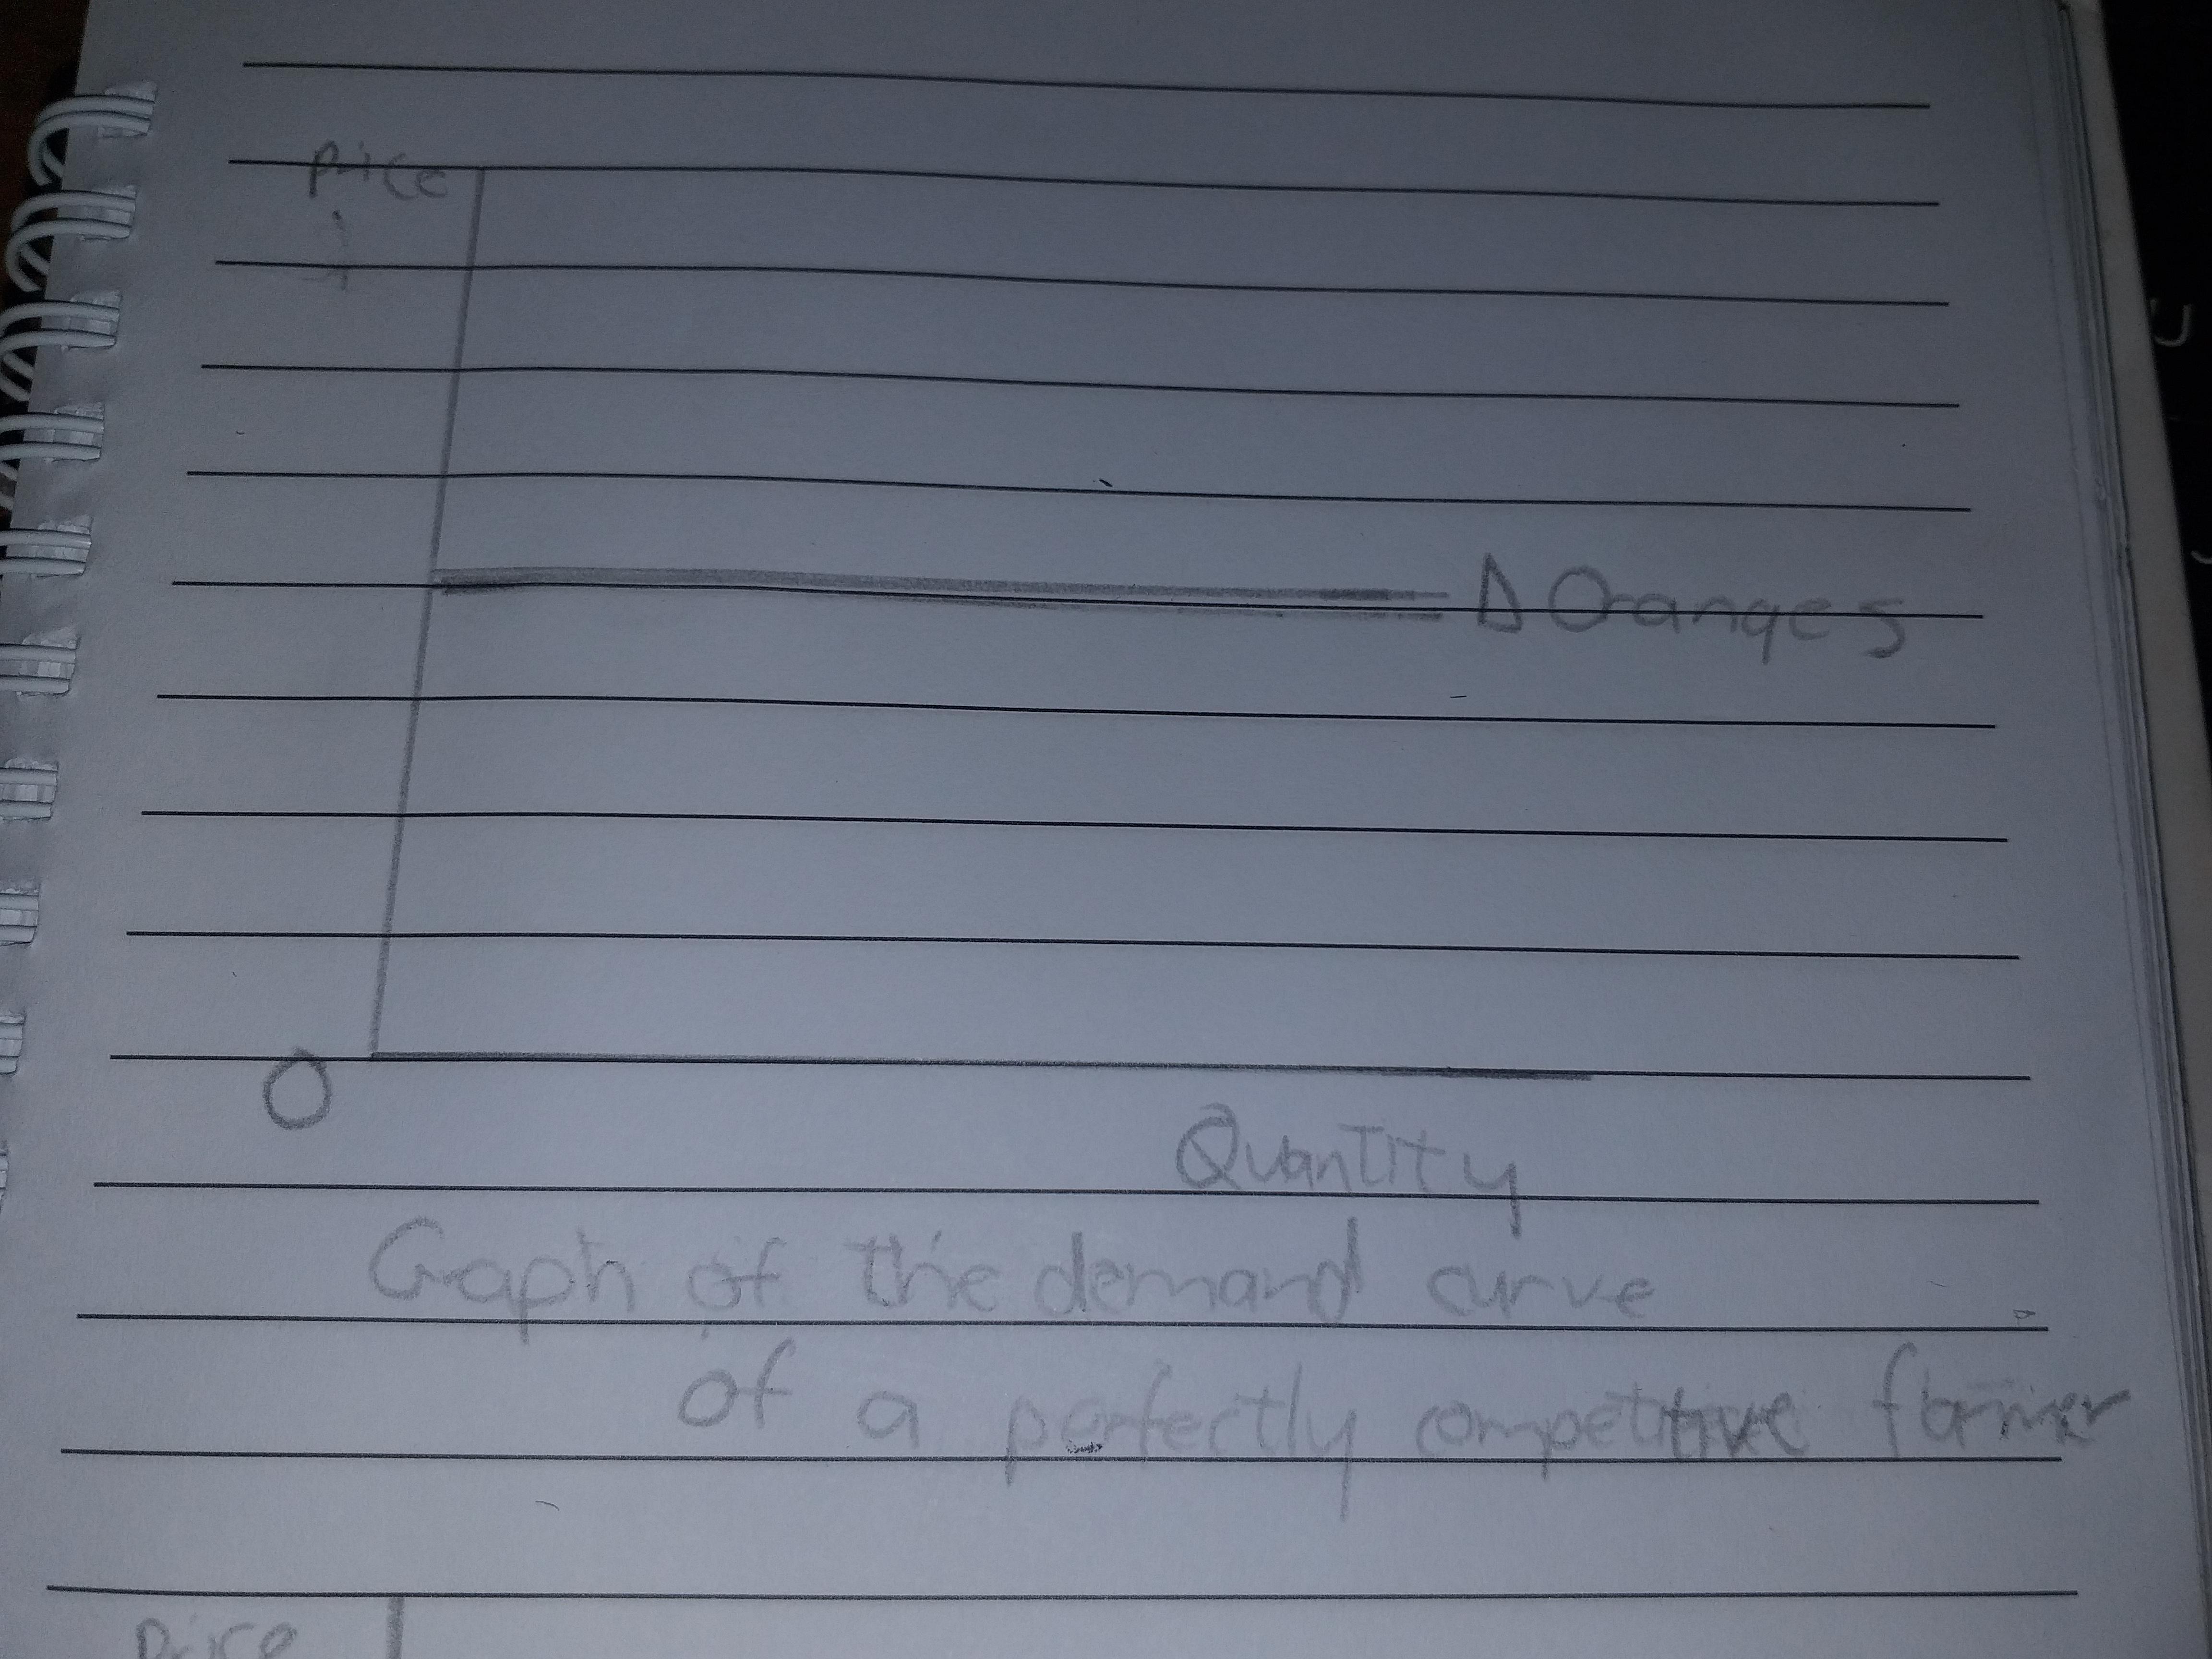 Price
D Oranges
O
Quantity
Graph of the demand curve
of a perfectly competitive farmer
Price